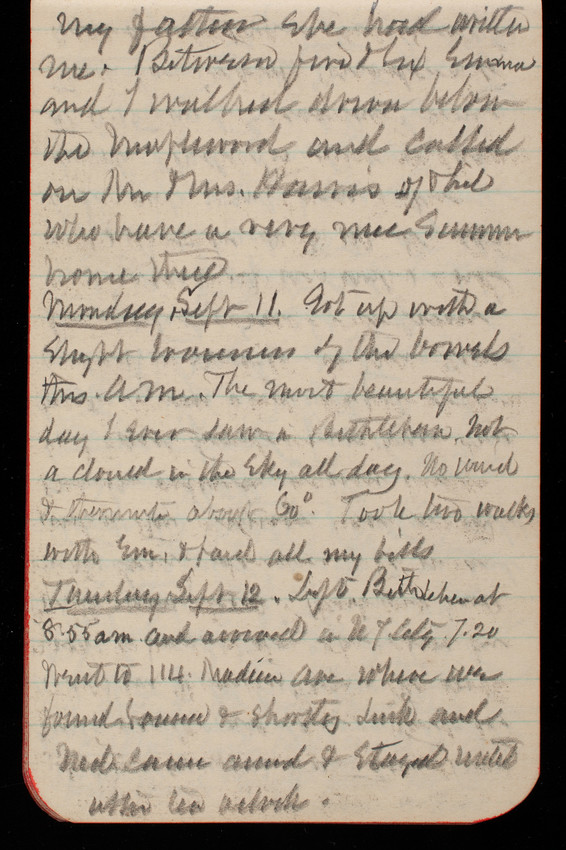 my
me. Between five & six Emma
and I walked down below
the Maplewood and called
on Mr & Mrs. Harris of Phil
who have a very nice Summer
home there.
Monday, Sept 11. Got up with a
slight looseness of the bowels
this A.M. The most beautiful
day I ever saw in Bethlehem. Not
a cloud in the sky all day. No wind
& thermometer about 60°. Took two walks
with Em. & paid all my bills
Tuesday Sept 12. Left Bethlehem at
8.55 am and arrived in N Y City 7.20
Went to 114 Madison Ave where we
found & and
Ned came around & stayed until
after ten oclock.